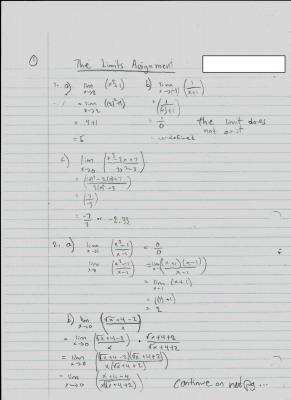 ① The Limits Assignment
1. a) lim x→2 (x²+1) b) lim x→(-1) (1/x+1)
= lim x→2 (2)²+1 = (1/(-1)+1)
= 4+1 = 1/0 the limit does not exist
= 5 = undefined
c) lim x→0 (x²-3x+7/3x²-3)
= ((0)²-3(0)+7/3(0)²-3)
= (7/-3)
= -7/3 ≈ -2.33
2. a) lim x→1 (x²-1/x-1) = 0/0
lim (x²-1/x-1) = lim x→1 (x+1)(x-1)/x-1
= lim x→1 (x+1)
= (1)+1
= 2
b) lim x→0 (√x+4-2/x)
= lim x→0 (√x+4-2/x) · √x+4+2/√x+4+2
= lim x→0 ((√x+4-2)(√x+4+2)/x(√x+4+2))
= lim x→0 (x+4-4/x(√x+4+2)) Continue on next pg...